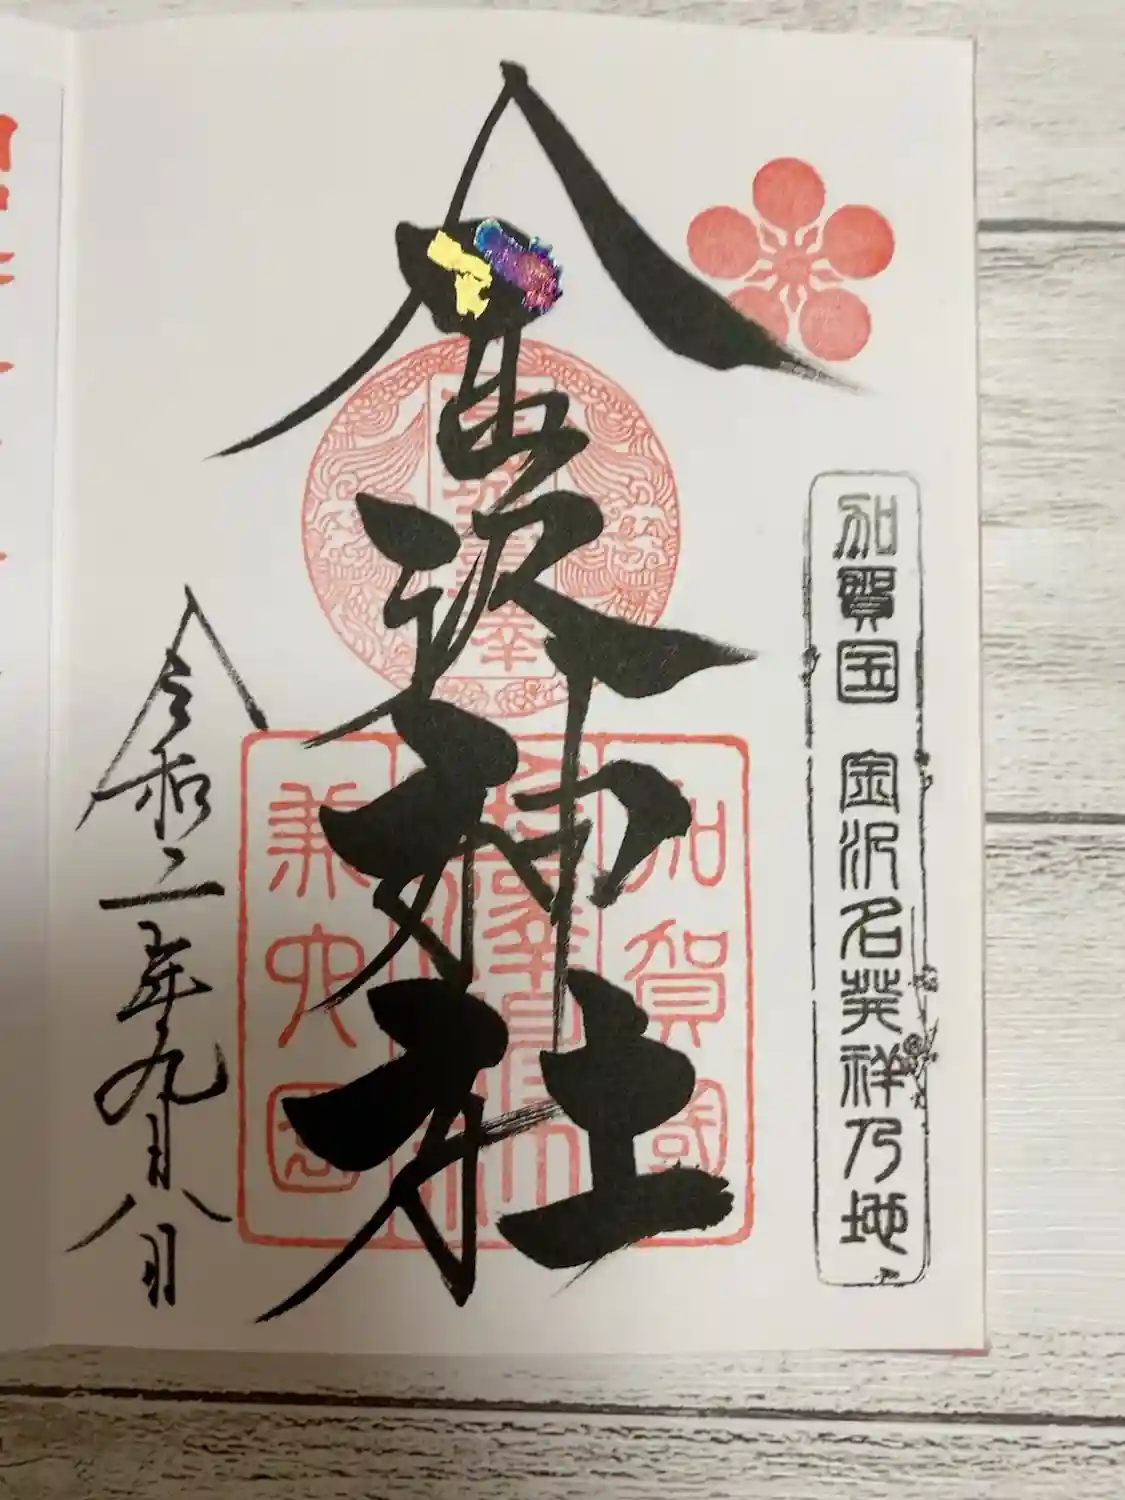 加賀国 金沢名発祥乃地
金沢神社
加賀國
兼六園
令和二年九月八日